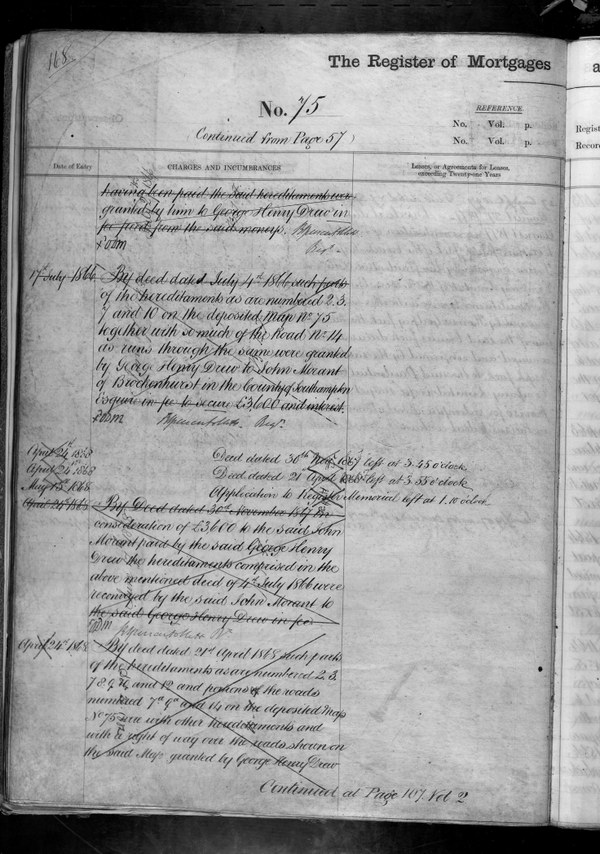 168
The Register of Mortgages
No. 75
REFERENCE
No. Vol. p.
Continued from Page 57
No. Vol. p.
Regist
Record
Date of Entry
CHARGES AND INCUMBRANCES
Leases, or Agreements for Leases, exceeding Twenty-one Years
having been paid the said hereditaments were
granted by him to George Henry Drew in
fee freed from the said moneys.
17th July 1866 By deed dated July 4th 1866 such parts
of the hereditaments as are numbered 2. 3.
7 and 10 on the deposited Map No 75
together with so much of the Road No 14
as runs through the same were granted
by George Henry Drew to John Morant
of Brockenhurst in the County of Southampton
Esquire in fee to secure £3,600 and interest.
April 24th 1868 Deed dated 30th Nov. 1867 left at 3.45 o'clock
April 24th 1868 Deed dated 21st April 1868 left at 3.55 o'clock
May 15th 1868 Application to Register Memorial left at 1.10 o'clock
April 24th 1868 By Deed dated 30th November 1867 In
consideration of £3,600 to the said John
Morant paid by the said George Henry
Drew the hereditaments comprised in the
above mentioned deed of 4th July 1866 were
reconveyed by the said John Morant to
the said George Henry Drew in fee
April 24th 1868 By deed dated 21st April 1868 such parts
of the hereditaments as are numbered 2. 3.
7. 8. 9. and 12 and portions of the roads
numbered 7a 9a and 14 on the deposited Map
No 75 were with other hereditaments and
with a right of way over the roads shown on
the said Map granted by George Henry Drew
Continued at Page 107 Vol 2